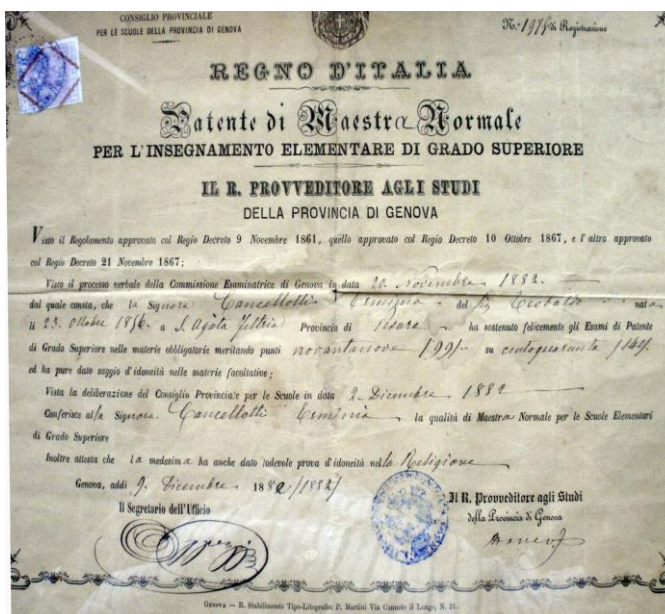 CONSIGLIO PROVINCIALE
PER LE SCUOLE DELLA PROVINCIA DI GENOVA
N.º 1975 di Registrazione
REGNO D'ITALIA
Patente di Maestra Normale
PER L'INSEGNAMENTO ELEMENTARE DI GRADO SUPERIORE
IL R. PROVVEDITORE AGLI STUDI
DELLA PROVINCIA DI GENOVA
Visto il Regolamento approvato col Regio Decreto 9 Novembre 1861, quello approvato col Regio Decreto 10 Ottobre 1867, e l'altro approvato
col Regio Decreto 21 Novembre 1867;
Visto il processo verbale della Commissione Esaminatrice di Genova in data 20 Novembre 1882
dal quale consta, che la Signora Cancellotti Erminia del Teobaldo nata
li 23 Ottobre 1856 a S. Agata Feltria Provincia di Pesaro ha sostenuto felicemente gli Esami di Patente
di Grado Superiore nelle materie obbligatorie meritando punti novantanove (99) su centoquaranta (140)
ed ha pure dato saggio d'idoneità nelle materie facoltative;
Vista la deliberazione del Consiglio Provinciale per le Scuole in data 2 Dicembre 1882
Conferisce alla Signora Cancellotti Erminia la qualità di Maestra Normale per le Scuole Elementari
di Grado Superiore
Inoltre attesta che la medesima ha anche dato lodevole prova d'idoneità nella Religione
Genova, addì 9 Dicembre 1882 (1882)
Il Segretario dell'Ufficio
Il R. Provveditore agli Studi
della Provincia di Genova
GENOVA — R. Stabilimento Tipo-Litografico P. Martini Via Canneto il Lungo, N. 21.